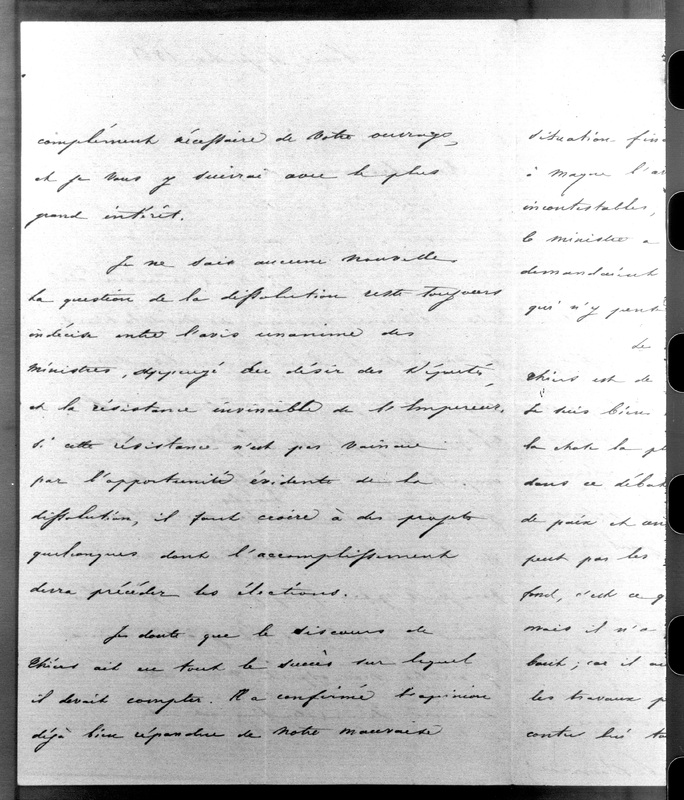 complément nécessaire de votre ouvrage,
et je vous y suivrai avec le plus
grand intérêt.
Je ne sais aucune nouvelle.
La question de la dissolution reste toujours
indécise entre l'avis unanime des
ministres, appuyé du désir des Députés,
et la résistance invincible de l'Empereur.
Si cette résistance n'est pas vaincue
par l'opportunité évidente de la
dissolution, il faut croire à des projets
quelconques dont l'accomplissement
devra précéder les élections.
Je doute que le discours de
Thiers ait eu tout le succès sur lequel
il devait compter. Il a confirmé l'opinion
déjà bien répandue de notre mauvaise
situation fin
à Magne l'a
incontestables,
le ministre a
demandaient
qui n'y pent
de
Thiers est de
Je suis bien
la chose la pl
dans ce débat
de paix et
peut par les
fond, c'est ce q
mais il n'a
bout ; car il
les travaux p
contre lui